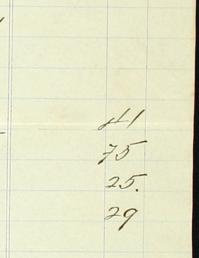 41
75
25.
29